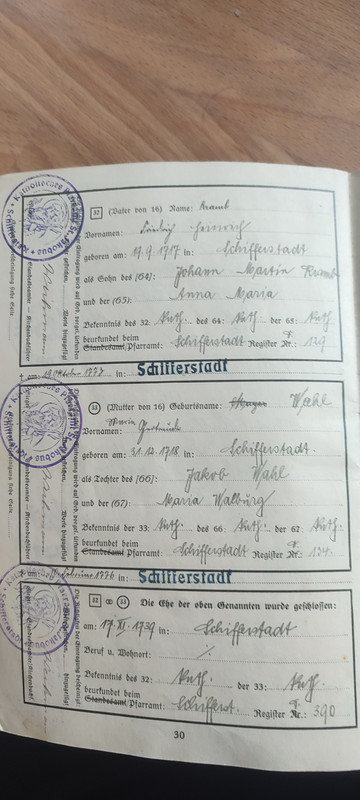 32 (Vater von 16) Name: Kramb
Vornamen: Heinrich
geboren am 19.9.1717 in: Schifferstadt
als Sohn des (64): Johann Martin Kramb
und der (65): Anna Maria
Bekenntnis des 32: Kath. des 64: Kath. der 65: Kath.
beurkundet beim
Standesamt/Pfarramt: Schifferstadt Register Nr.: 129
† am: 19. Oktober 1777 in: Schifferstadt
33 (Mutter von 16) Geburtsname: Wahl
Maria
Vornamen: Gertraud
geboren am 31.12.1718 in: Schifferstadt.
als Tochter des (66): Jakob Wahl
und der (67): Maria Walburg
Bekenntnis der 33: Kath. des 66 Kath. der 67 Kath.
beurkundet beim
Standesamt/Pfarramt: Schifferstadt Register Nr.: 134.
Februar 1776 in: Schifferstadt
32 ∞ 33 Die Ehe der oben Genannten wurde geschlossen:
am: 17. XI. 1739 in: Schifferstadt
Beruf u. Wohnort: ⁒
Bekenntnis des 32: Kath. der 33: Kath.
beurkundet beim
Standesamt/Pfarramt: Schifferst. Register Nr.: 390
30